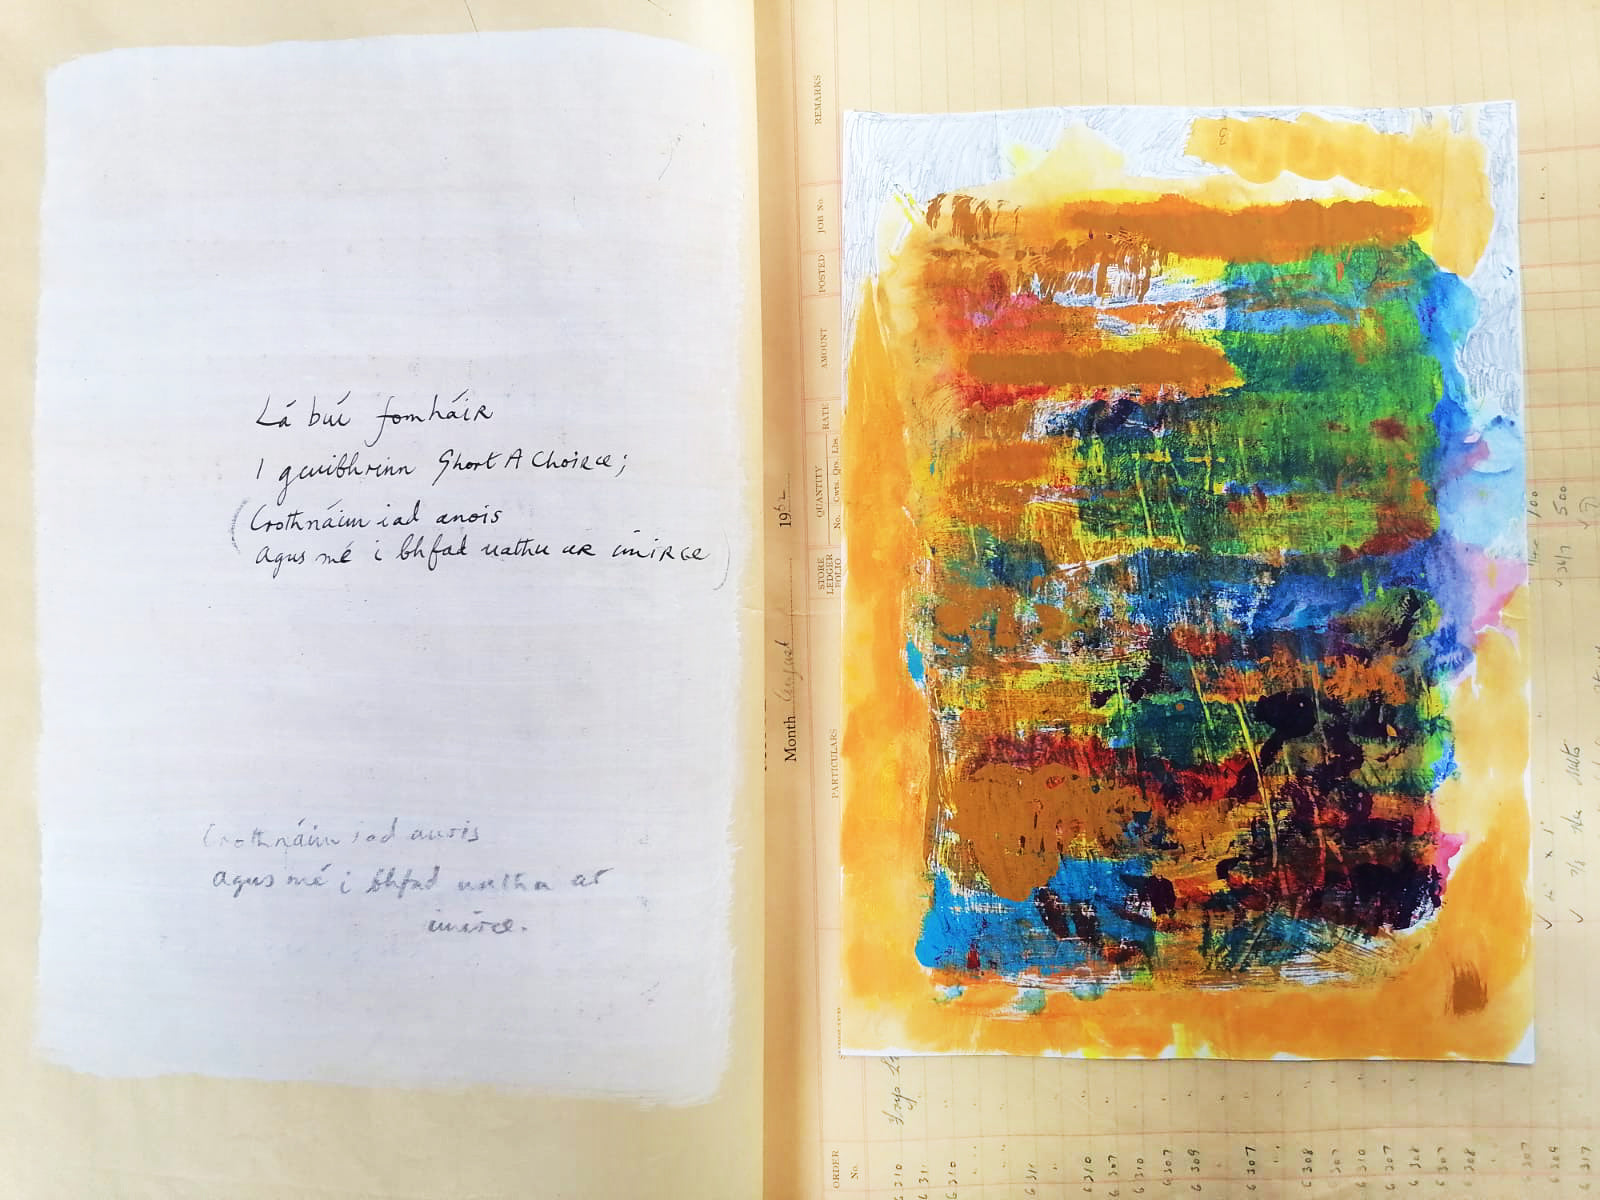 Lá buí fomháir
I gcuibhrinn Ghort A Choirce;
(Crothnáim iad anois
agus mé i bhfad uathu ar imirce)
Crothnáim iad anois
agus mé i bhfad uathu ar
imirce.
Month August 1962
REMARKS
JOB No.
POSTED
AMOUNT
RATE
QUANTITY
No. Cwts. Qrs. Lbs.
STORE LEDGER FOLIO
PARTICULARS
ORDER No.
6310
6310
6311
6310
6307
6310
6307
6309
6307
6308
6307
6310
6307
6308
6307
6308
6307
6309
6317
100
500